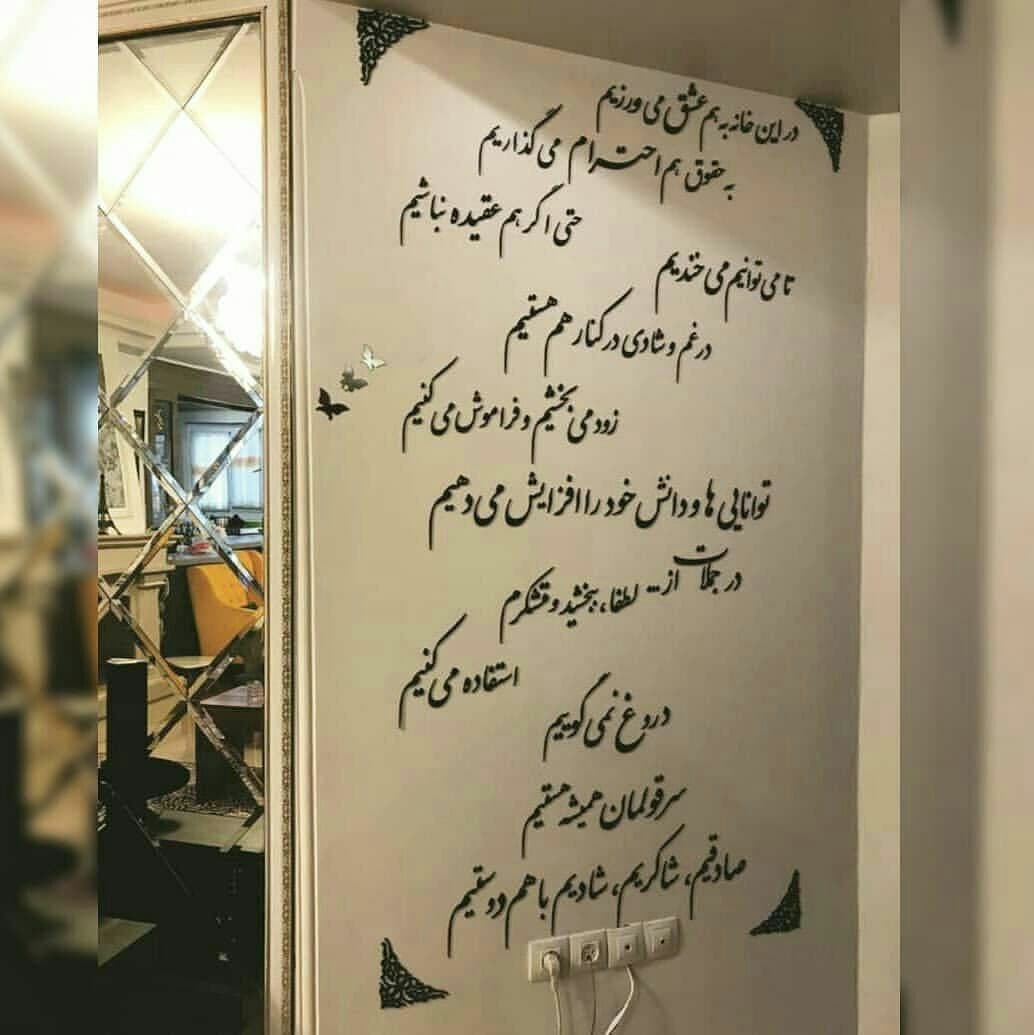 در این خانه به هم عشق می ورزیم
به حقوق هم احترام می گذاریم
حتی اگر هم عقیده نباشیم
تا می توانیم می خندیم
در غم و شادی در کنار هم هستیم
زود می بخشیم و فراموش می کنیم
توانایی ها و دانش خود را افزایش می دهیم
در جملات از ... لطفا، ببخشید و متشکرم
استفاده می کنیم
دروغ نمی گوییم
سر قولمان همیشه هستیم
صادقیم، شاکریم، شادیم با هم دوستیم